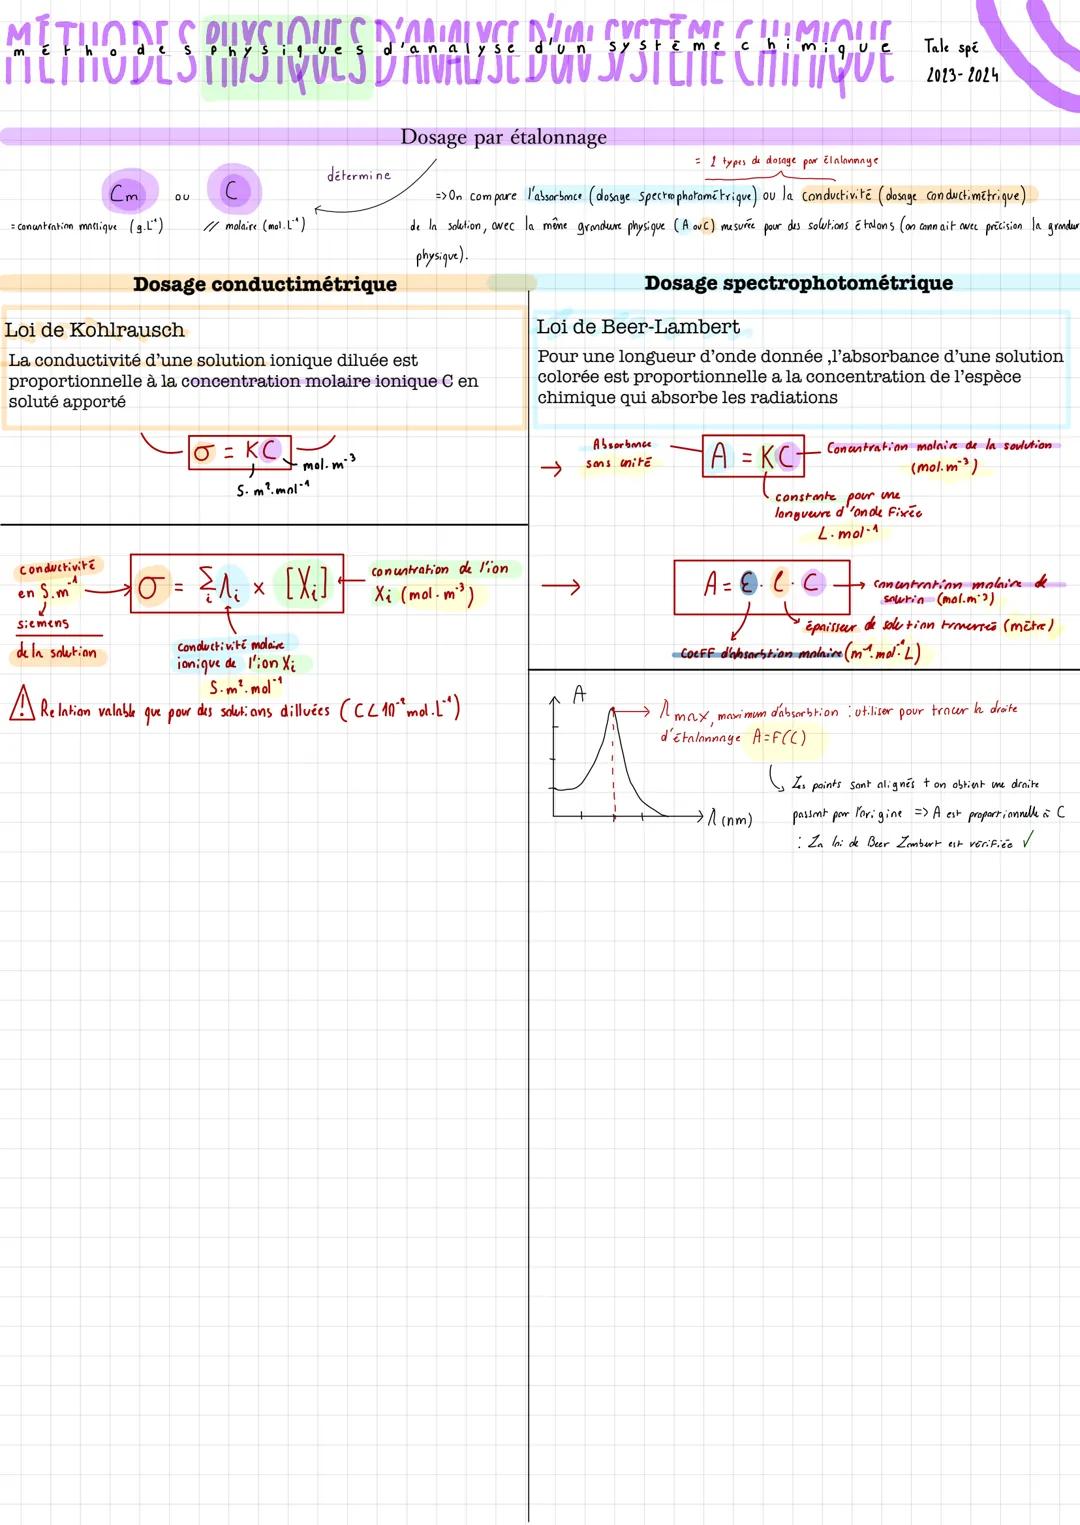 MÉTHODES PHYSIQUES D'ANALYSE D'UN SYSTÈME CHIMIQUE
méthodes physiques d'analyse d'un système chimique
Tale spé
2023-2024
Dosage par étalonnage
= 2 types de dosage par étalonnage
détermine
Cm ou C
= concentration massique (g.L⁻¹) // molaire (mol.L⁻¹)
=> On compare l'absorbance (dosage spectrophotométrique) ou la conductivité (dosage conductimétrique)
de la solution, avec la même grandeure physique (A ou C) mesurée pour des solutions étalons (on connait avec précision la grandeur
physique).
Dosage conductimétrique
Loi de Kohlrausch
La conductivité d'une solution ionique diluée est
proportionnelle à la concentration molaire ionique C en
soluté apporté
σ = KC
mol.m⁻³
S.m².mol⁻¹
conductivité
en S.m⁻¹
siemens
de la solution
σ = Σᵢ Λᵢ × [Xᵢ]
concentration de l'ion
Xᵢ (mol.m⁻³)
conductivité molaire
ionique de l'ion Xᵢ
S.m².mol⁻¹
⚠ Relation valable que pour des solutions dilluées (C<10⁻² mol.L⁻¹)
Dosage spectrophotométrique
Loi de Beer-Lambert
Pour une longueur d'onde donnée ,l'absorbance d'une solution
colorée est proportionnelle a la concentration de l'espèce
chimique qui absorbe les radiations
Absorbance
sans unité
→ A = KC
Concentration molaire de la soulution
(mol.m⁻³)
constante pour une
longueure d'onde Fixée
L.mol⁻¹
→ A = ε . l . C
concentration molaire de
solution (mol.m⁻³)
épaisseur de solution traversée (mètre)
coeFF d'absorbtion molaire (m⁻¹.mol⁻¹L)
A
λ max, maximum d'absorbtion : utiliser pour tracer la droite
d'étalonnage A=F(C)
Les points sont alignés + on obtient une droite
passant par l'origine => A est proportionnelle à C
: La loi de Beer Lambert est vériFiée ✓
λ (nm)